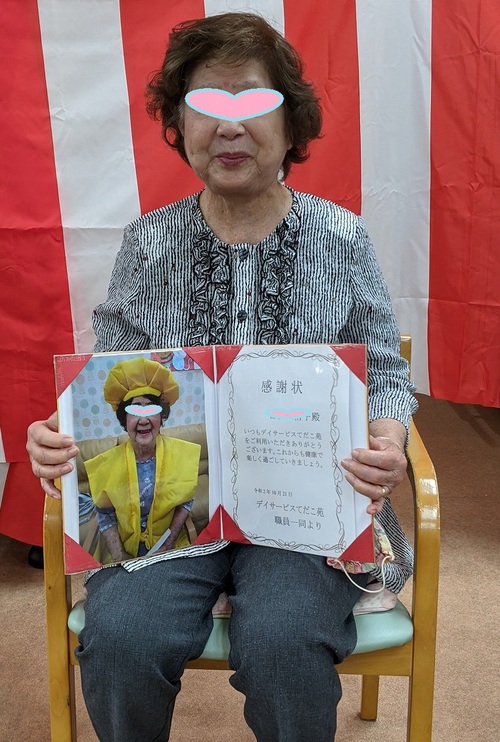 感謝状
殿
いつもデイサービスてだこ苑
をご利用いただきありがとう
ございます。これからも健康で
楽しく過ごしていきましょう。
令和2年10月21日
デイサービスてだこ苑
職員一同より